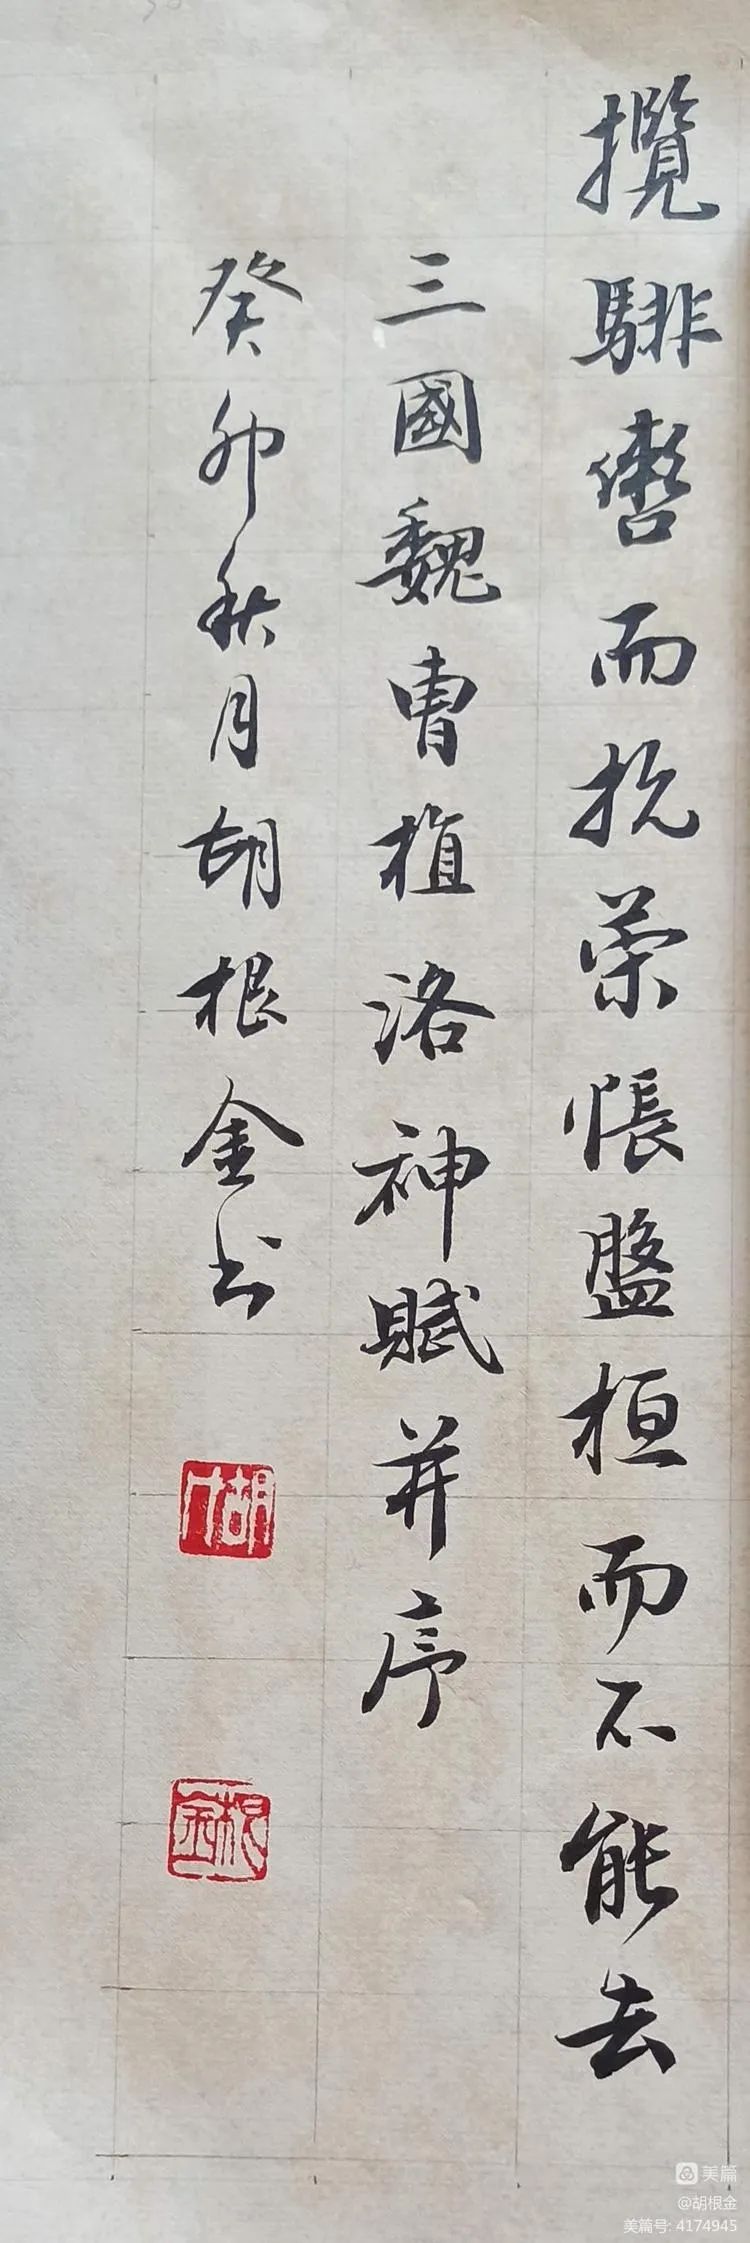 攬騑轡而抗策悵盤桓而不能去
三國魏曹植洛神賦并序
癸卯秋月胡根金书
胡
根金
美篇
@胡根金
美篇号: 4174945